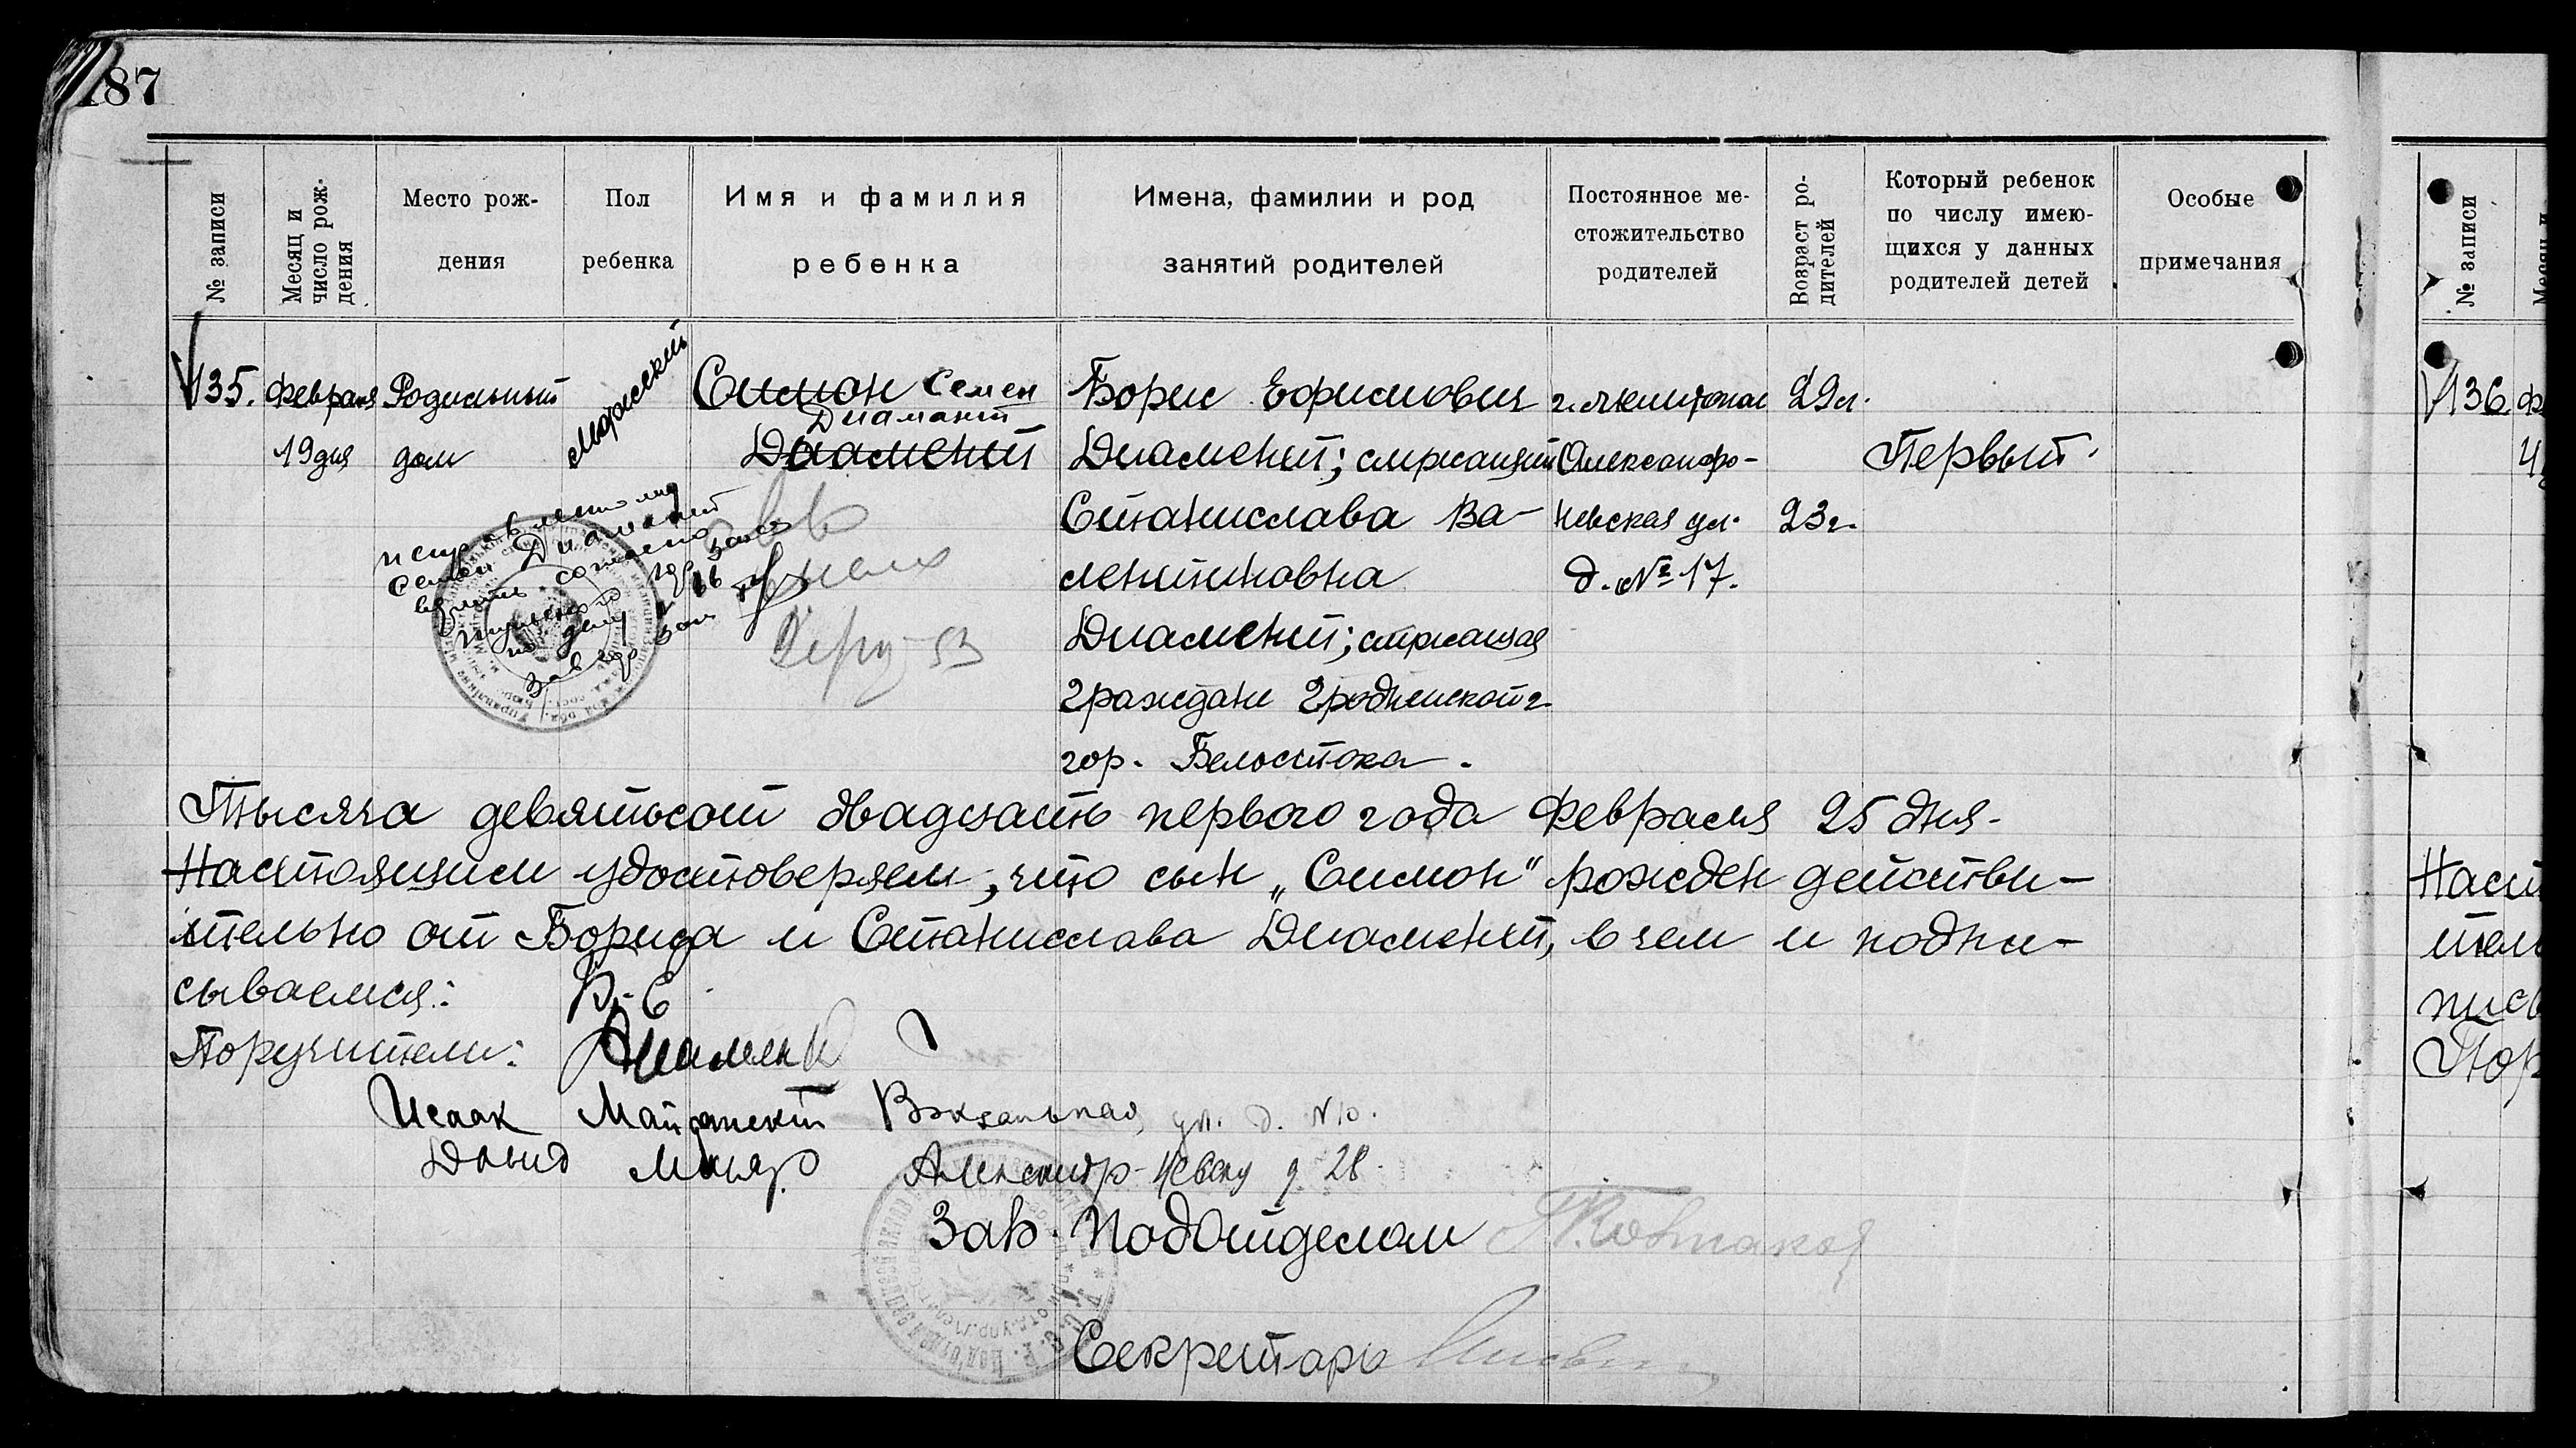 187
№ записи
Месяц и число рож-дения
Место рож-
дения
Пол
ребенка
Имя и фамилия
ребенка
Имена, фамилии и род
занятий родителей
Постоянное ме-
стожительство
родителей
Возраст ро-
дителей
Который ребенок
по числу имею-
щихся у данных
родителей детей
Особые
примечания
№ записи
135.
Февраля
19 дня
Родильный
дом
Мужской
Симон Семен
Диамант
Диамент
исправлено на
Семен Диамант
Борис Ефимович
Диамент; служащий
Станислава Ва-
лентиновна
Диамент; служащая
граждане Гродненской г.
гор. Белостока.
г. Мелитополь
Александро-
невская ул.
д. № 17.
29 л.
23 г.
Первый.
Тысяча девятьсот двадцать первого года Февраля 25 дня.
Настоящим удостоверяем, что сын „Симон" рожден действи-
тельно от Бориса и Станислава Диамент, в чем и подпи-
сываемся:
Б. Е.
Поручители:
Диамент
Исаак
Вокзальная ул. д. №10.
Давид
Александр-Невску д. 28
Зав. Подотделом
Секретарь
136
Ф
4
Наст
тель
писы
Пор